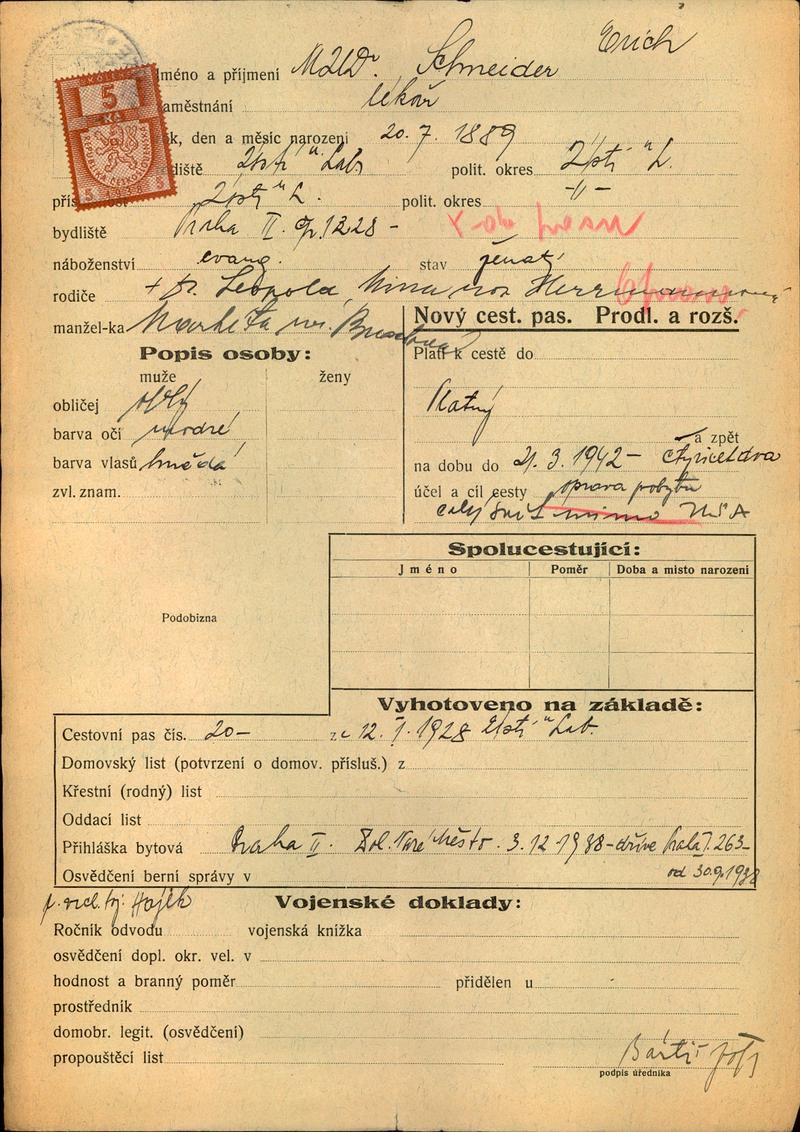 Jméno a příjmení MUDr. Schneider Erich
zaměstnání lékař
rok, den a měsíc narození 20. 7. 1889
5
Kč
REPUBLIKA ČESKOSLOVENSKÁ
5 1938 5
Ústí n Lab polit. okres Ústí n L.
Ústí n L. polit. okres -"-
bydliště Praha II. čp. 1328 - x do pasu
náboženství evang. stav ženatý
rodiče + Dr. Leopold, Mina roz Herrmannová
manžel-ka Markéta
Nový cest. pas. Prodl. a rozš.
Popis osoby:
muže ženy
obličej oblý
barva očí modré
barva vlasů hnědá
zvl. znam.
Platí k cestě do
Platný
a zpět
na dobu do 21. 3. 1942 - čtyřicetdva
účel a cíl cesty oprava pobytu
celý svět mimo USA
Podobizna
Spolucestující:
Jméno Poměr Doba a místo narození
Vyhotoveno na základě:
Cestovní pas čís. 20- z 12. 1928 Ústí n Lab.
Domovský list (potvrzení o domov. přísluš.) z
Křestní (rodný) list
Oddací list
Přihláška bytová Praha II. Dol. Nové Město. 3. 12 1938 - dříve Praha I. 263-
od 30.9.1938
Osvědčení berní správy v
Hajek
Vojenské doklady:
Ročník odvodu vojenská knížka
osvědčení dopl. okr. vel. v
hodnost a branný poměr přidělen u
prostředník
domobr. legit. (osvědčení)
propouštěcí list
podpis úředníka